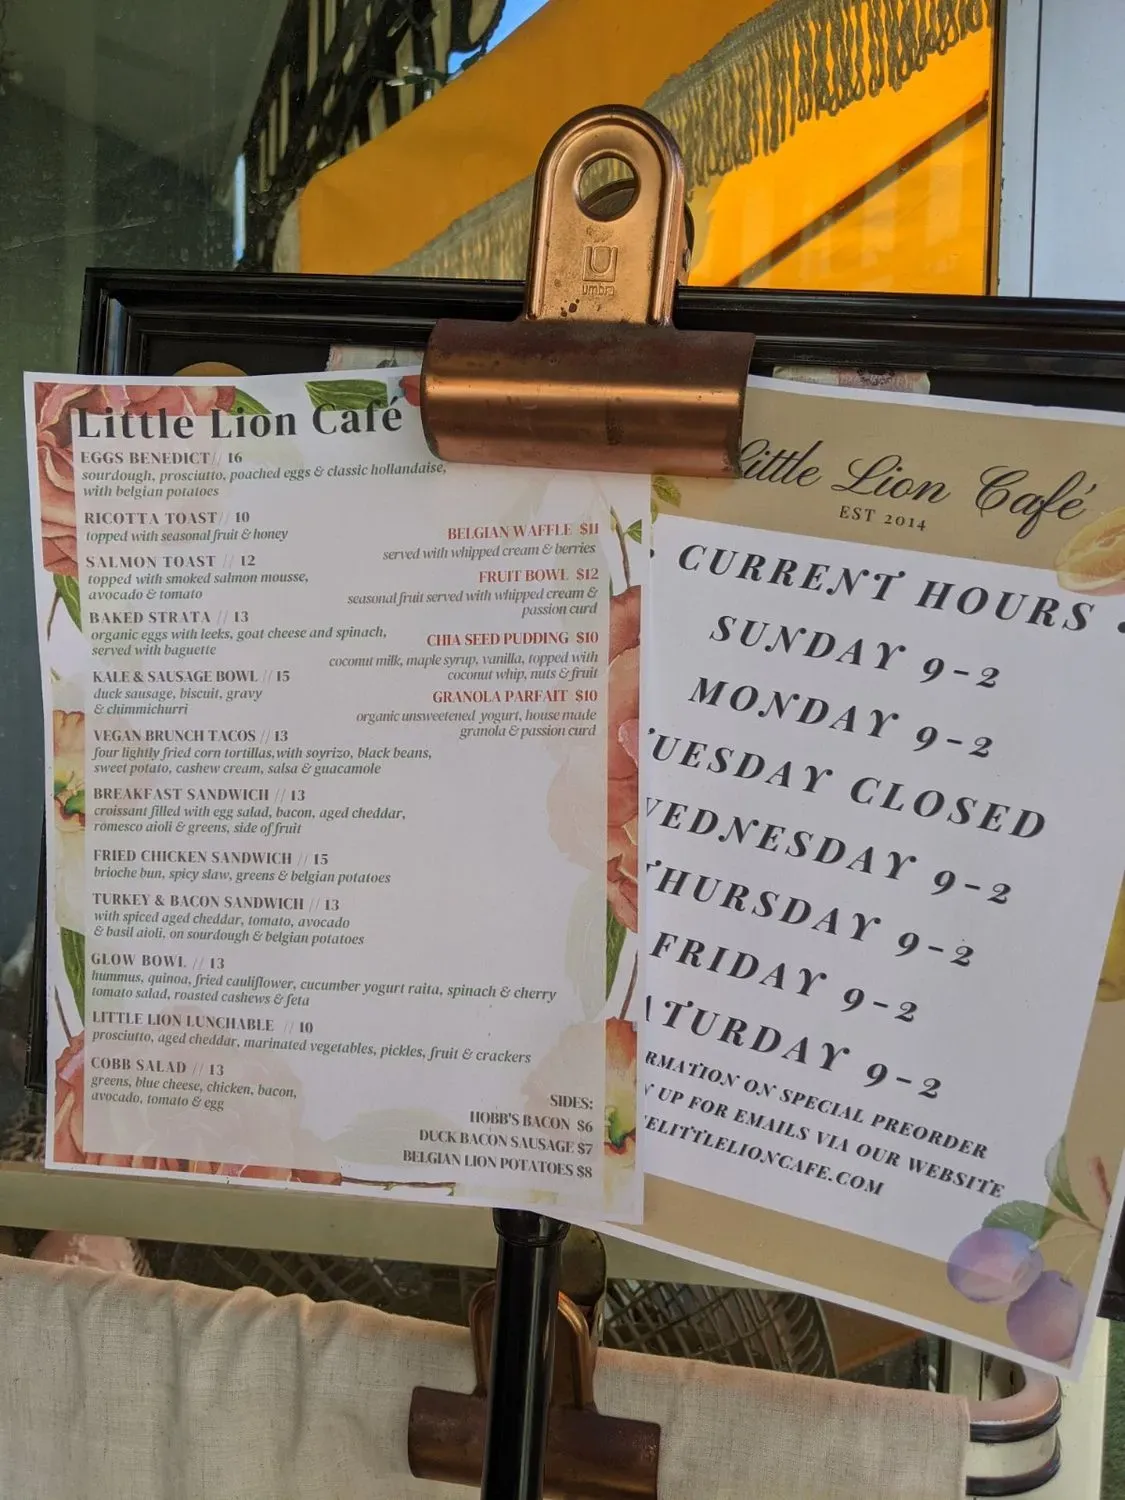 umbra
Little Lion Café
EGGS BENEDICT// 16
sourdough, prosciutto, poached eggs & classic hollandaise,
with belgian potatoes
RICOTTA TOAST// 10
topped with seasonal fruit & honey
SALMON TOAST // 12
topped with smoked salmon mousse,
avocado & tomato
BAKED STRATA // 13
organic eggs with leeks, goat cheese and spinach,
served with baguette
KALE & SAUSAGE BOWL // 15
duck sausage, biscuit, gravy
& chimmichurri
VEGAN BRUNCH TACOS // 13
four lightly fried corn tortillas, with soyrizo, black beans,
sweet potato, cashew cream, salsa & guacamole
BREAKFAST SANDWICH // 13
croissant filled with egg salad, bacon, aged cheddar,
romesco aioli & greens, side of fruit
FRIED CHICKEN SANDWICH // 15
brioche bun, spicy slaw, greens & belgian potatoes
TURKEY & BACON SANDWICH // 13
with spiced aged cheddar, tomato, avocado
& basil aioli, on sourdough & belgian potatoes
GLOW BOWL // 13
hummus, quinoa, fried cauliflower, cucumber yogurt raita, spinach & cherry
tomato salad, roasted cashews & feta
LITTLE LION LUNCHABLE // 10
prosciutto, aged cheddar, marinated vegetables, pickles, fruit & crackers
COBB SALAD // 13
greens, blue cheese, chicken, bacon,
avocado, tomato & egg
BELGIAN WAFFLE $11
served with whipped cream & berries
FRUIT BOWL $12
seasonal fruit served with whipped cream &
passion curd
CHIA SEED PUDDING $10
coconut milk, maple syrup, vanilla, topped with
coconut whip, nuts & fruit
GRANOLA PARFAIT $10
organic unsweetened yogurt, house made
granola & passion curd
SIDES:
HOBB'S BACON $6
DUCK BACON SAUSAGE $7
BELGIAN LION POTATOES $8
Little Lion Café
EST 2014
CURRENT HOURS
SUNDAY 9-2
MONDAY 9-2
TUESDAY CLOSED
WEDNESDAY 9-2
THURSDAY 9-2
FRIDAY 9-2
ATURDAY 9-2
RMATION ON SPECIAL PREORDER
UP FOR EMAILS VIA OUR WEBSITE
ELITTLELIONCAFE.COM